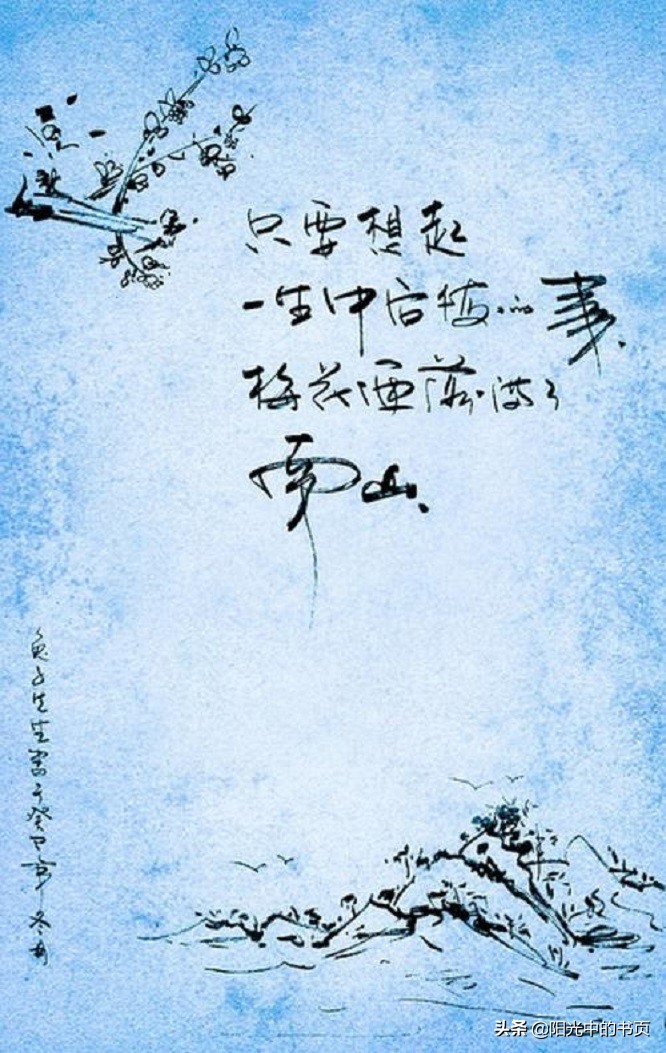 只要想起
一生中后悔的事
梅花便落满了
南山
兔子先生书于癸卯年冬月
头条 @阳光中的书页